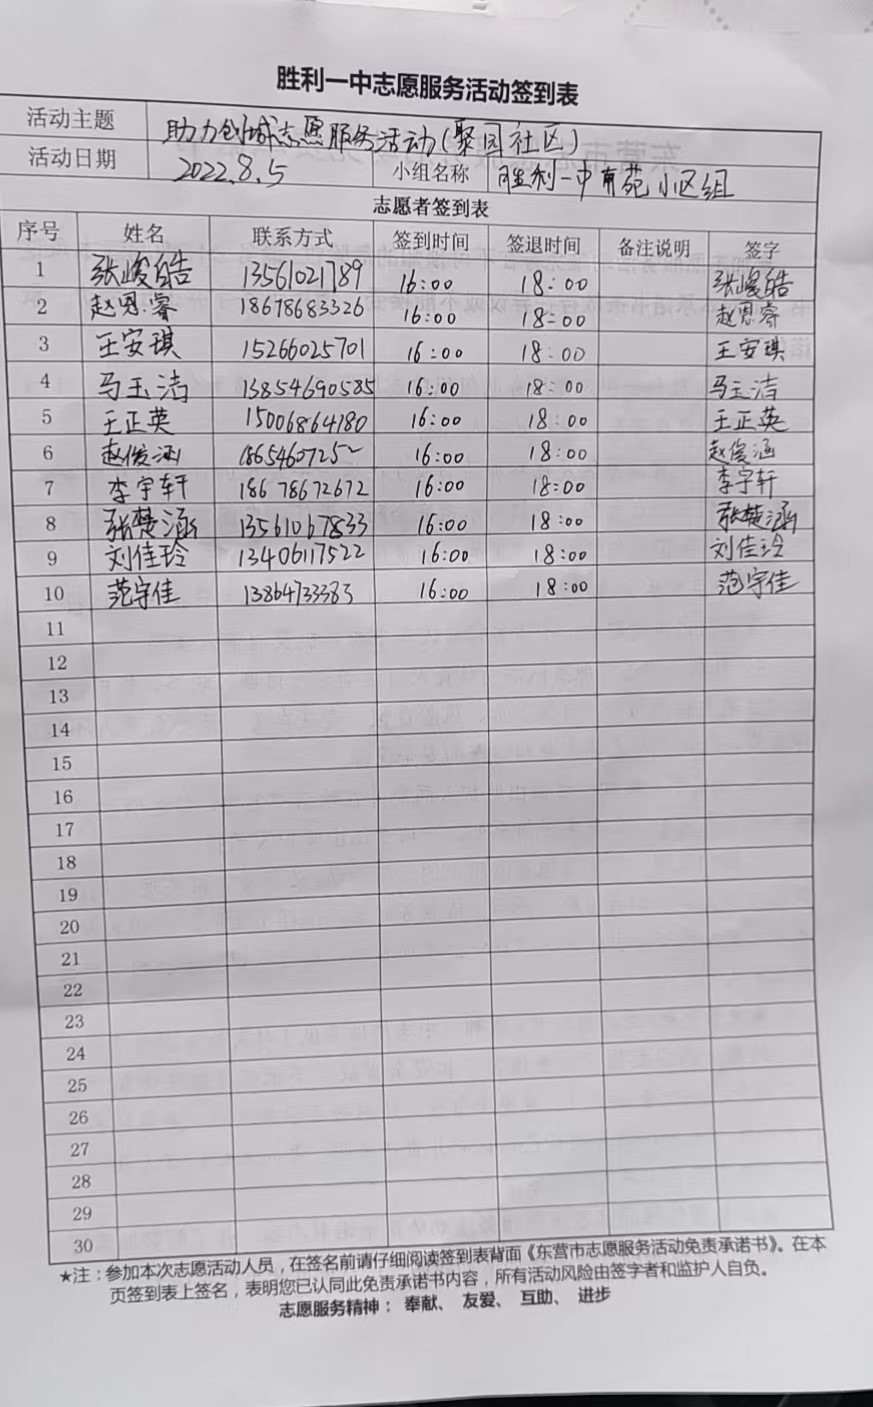 胜利一中志愿服务活动签到表
活动主题 助力创城志愿服务活动(聚园社区)
活动日期 2022.8.5 小组名称 胜利一中育苑小区组
志愿者签到表
序号 姓名 联系方式 签到时间 签退时间 备注说明 签字
1 张峻皓 13561021789 16:00 18:00 张峻皓
2 赵思睿 18678683326 16:00 18:00 赵思睿
3 王安琪 15266025701 16:00 18:00 王安琪
4 马玉洁 13854690585 16:00 18:00 马玉洁
5 王正英 15006864180 16:00 18:00 王正英
6 赵俊涵 18654607252 16:00 18:00 赵俊涵
7 李宇轩 18678672672 16:00 18:00 李宇轩
8 张楚涵 13561067833 16:00 18:00 张楚涵
9 刘佳玲 13406117522 16:00 18:00 刘佳玲
10 范宇佳 13864733383 16:00 18:00 范宇佳
11
12
13
14
15
16
17
18
19
20
21
22
23
24
25
26
27
28
29
30
★注：参加本次志愿活动人员，在签名前请仔细阅读签到表背面《东营市志愿服务活动免责承诺书》。在本
页签到表上签名，表明您已认同此免责承诺书内容，所有活动风险由签字者和监护人自负。
志愿服务精神： 奉献、 友爱、 互助、 进步